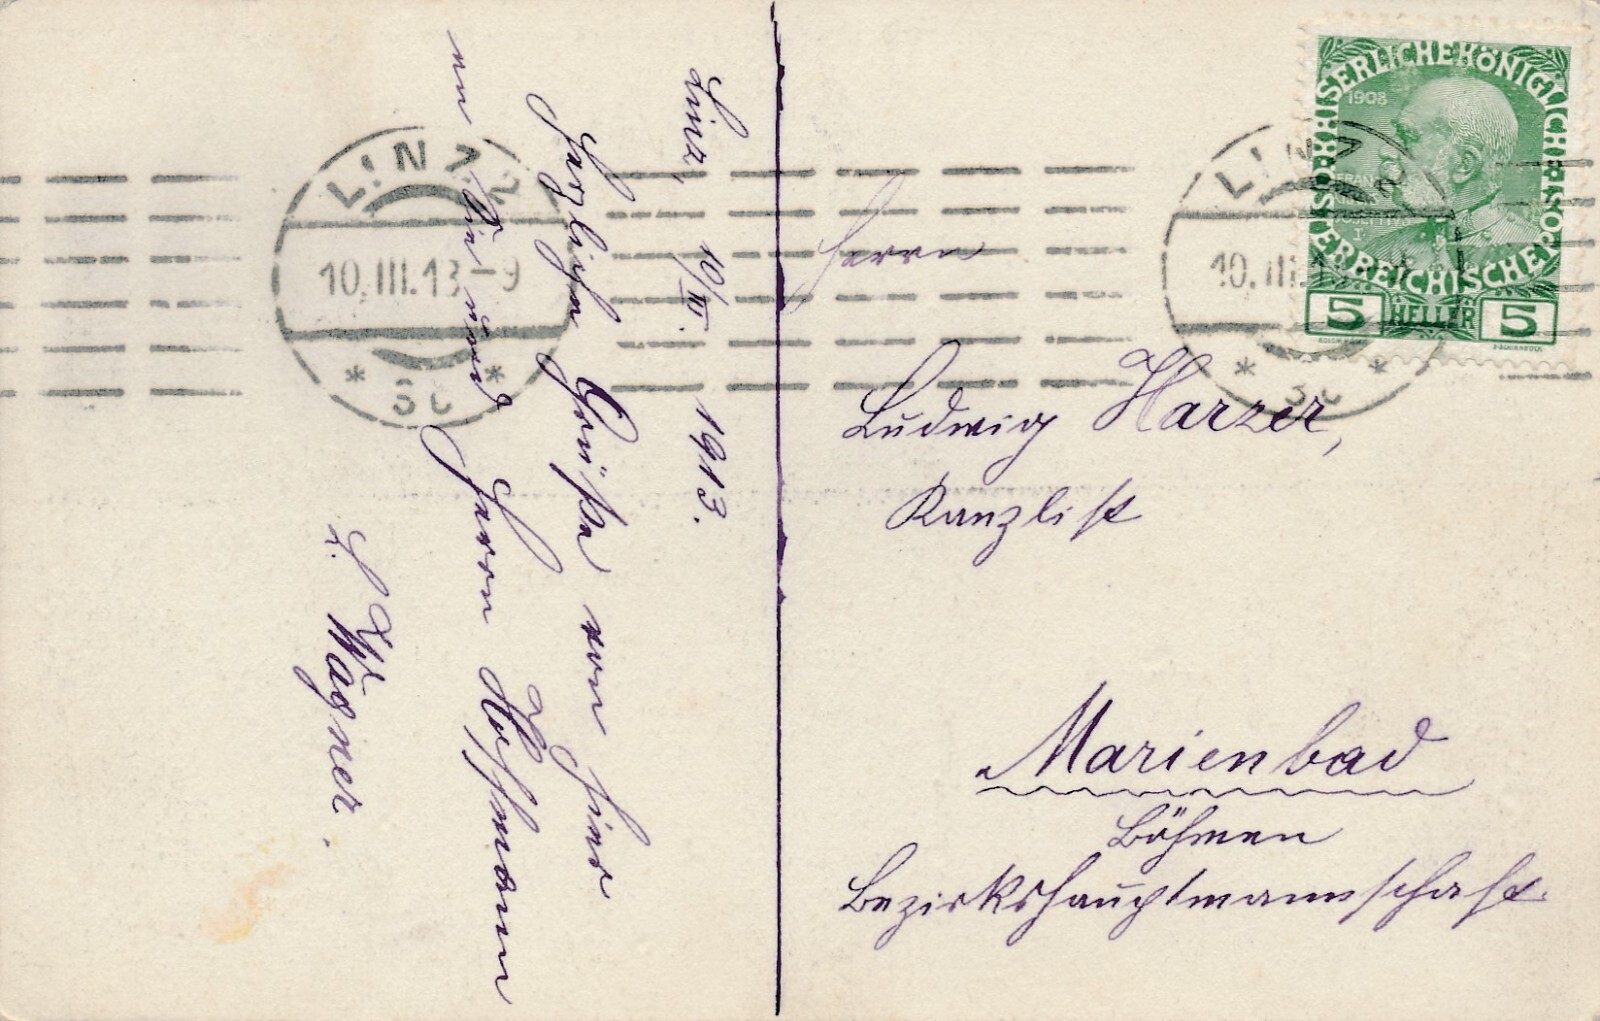 Linz, 10/III. 1913.
Herzliche Grüße von hier
an Sie und Herrn Hoffmann
L. Wagner.
LINZ 2
10.III.13-9
* 3c *
Herrn
Ludwig Harzer,
Kanzlist
Marienbad
Böhmen
Bezirkshauptmannschaft.
LINZ 2
10.III.1
* 3c *
KAISERLICHE KÖNIGLICHE ÖSTERREICHISCHE POST
1908
FRANZ
I.
5 HELLER 5